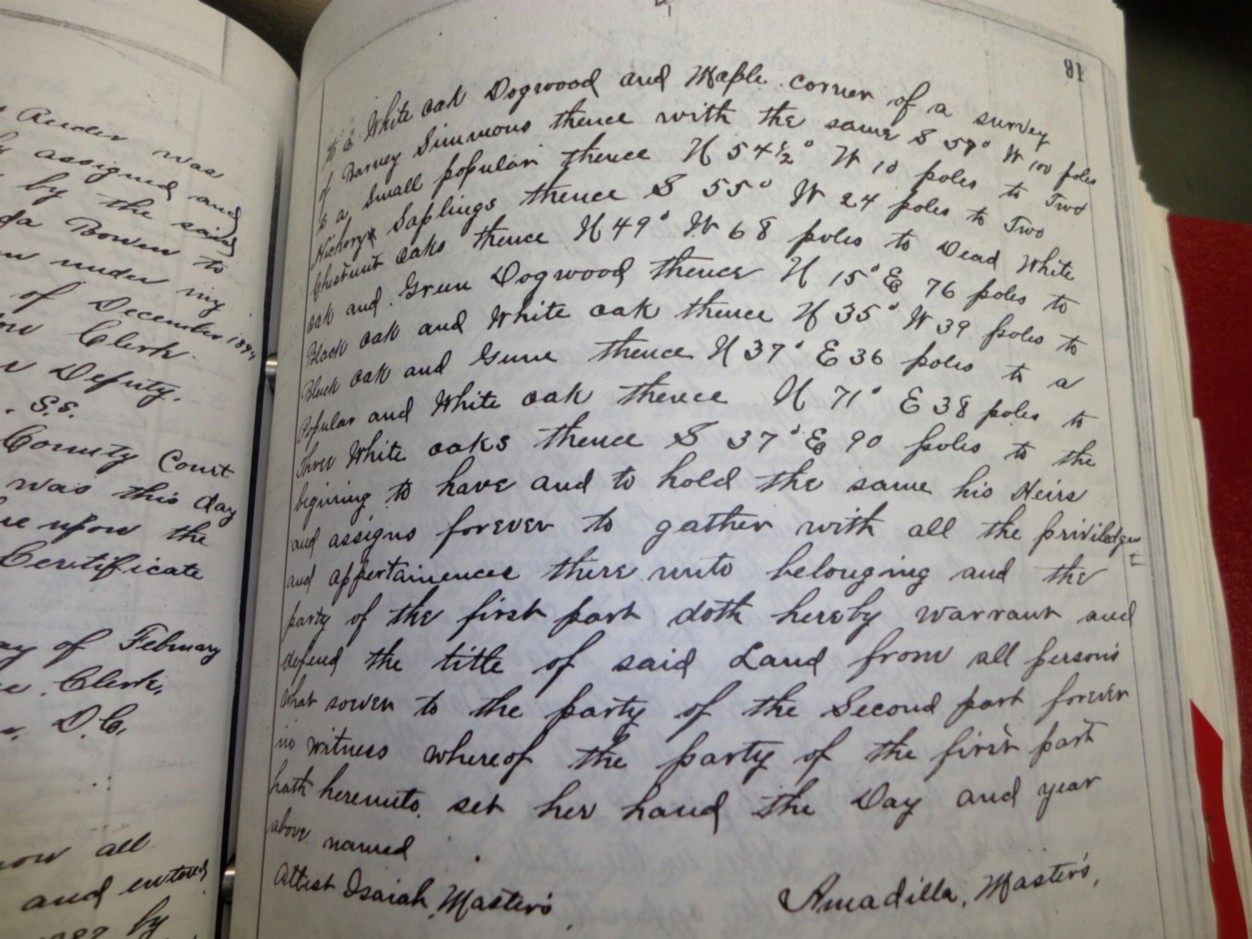 Render was
assigned and
by the said
da Bowen to
under my
of December 1894
Clerk
Deputy.
S.S.
County Court
was this day
upon the
Certificate
of February
Clerk,
D.C.
all
and entered
by
18
to a White oak Dogwood and Maple corner of a survey
of Barney Simmons thence with the same S 59° W 100 poles
to a Small popular thence N 54½° W 10 poles to Two
Hickory Saplings thence S 55° W 24 poles to Two
Chestnut oaks thence N 49° W 68 poles to Dead White
oak and Green Dogwood thence N 15° E 76 poles to
Black oak and White oak thence N 35° W 39 poles to
Black oak and Gum thence N 37° E 36 poles to a
Popular and White oak thence N 71° E 38 poles to
three White oaks thence S 37° E 90 poles to the
begining to have and to hold the same his Heirs
and assigns forever to gather with all the priviledges
and appertainences there unto belonging and the
party of the first part doth hereby warrant and
defend the title of said Land from all persons
what soever to the party of the Second part forever
in witness whereof the party of the first part
hath hereunto set her hand the Day and year
above named
Attest Isaiah Masters
Amadilla, Masters,